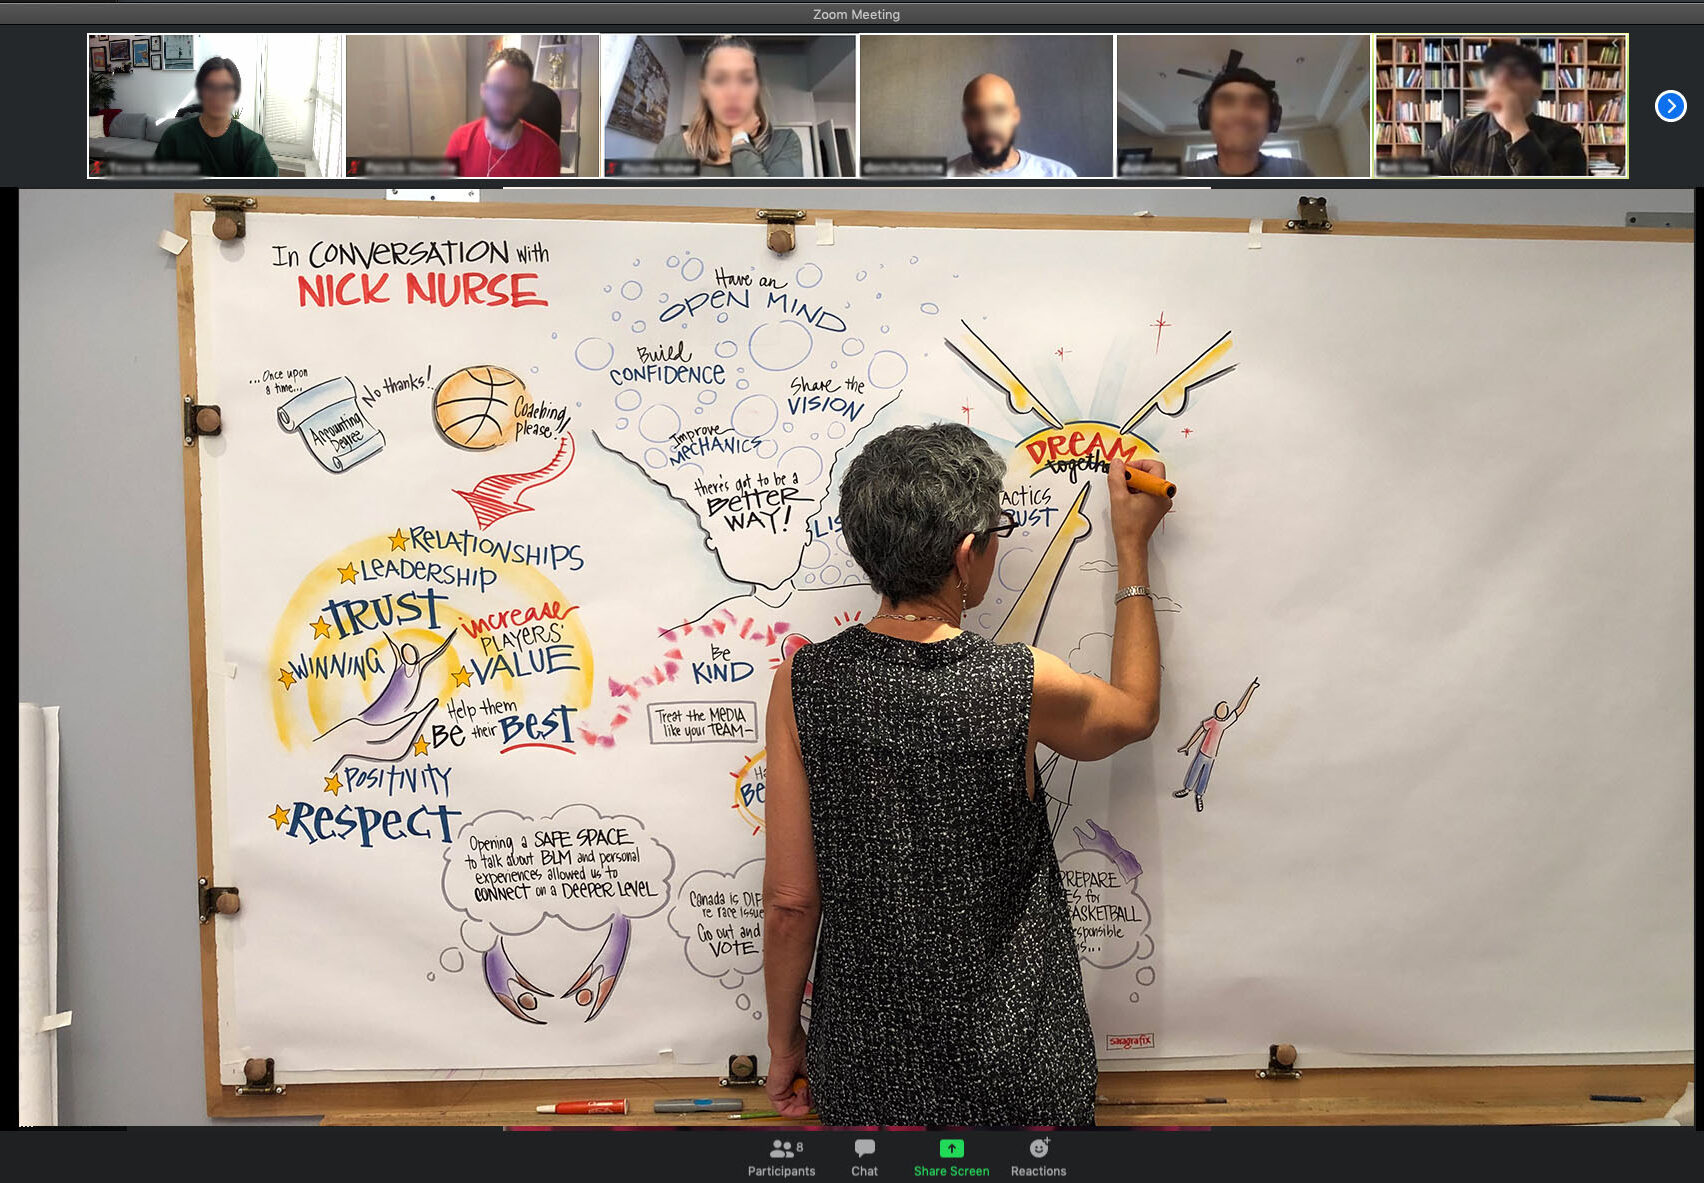 Zoom Meeting
In CONVERSATION with
NICK NURSE
...Once upon
a time...
Accounting
Degree
No thanks!
Coaching
please!!
RELATIONSHIPS
LEADERSHIP
TRUST
WINNING
increase
PLAYERS'
VALUE
Help them
BE their BEST
POSITIVITY
RESPECT
Have an
OPEN MIND
Build
CONFIDENCE
Share the
VISION
Improve
MECHANICS
there's got to be a
BETTER
WAY!
LIS
DREAM
togeth
ACTICS
RUST
Be
KIND
Treat the MEDIA
like your TEAM~
Ha
BE
Opening a SAFE SPACE
to talk about BLM and personal
experiences allowed us to
CONNECT on a DEEPER LEVEL
Canada is DIF
re race issue
Go out and
VOTE
PREPARE
ES for
BASKETBALL
esponsible
s...
saragrafix
8
Participants
Chat
Share Screen
Reactions